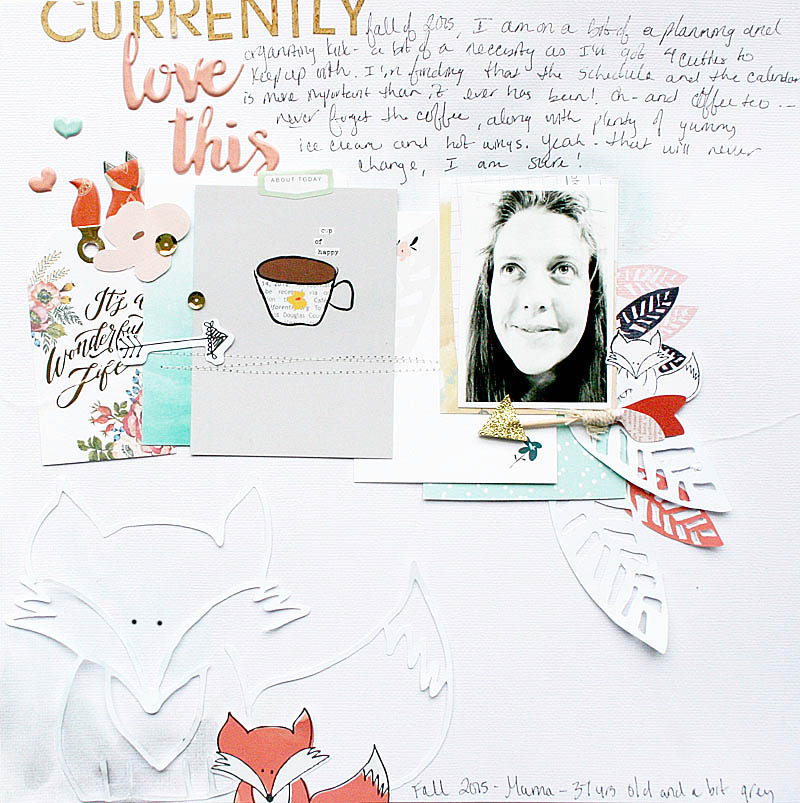 CURRENTLY
love
this
fall of 2015, I am on a bit of a planning and
organizing kick - a bit of a necessity as I'm got 4 cuties to
keep up with. I'm finding that the schedule and the calendar
is more important than it ever has been! Oh - and coffee too --
never forget the coffee, along with plenty of yummy
ice cream and hot wings. Yeah - that will never
change, I am sure!
ABOUT TODAY
cup
of
happy
It's a
Wonderful
Life
Fall 2015 - Mama - 37 yrs old and a bit grey